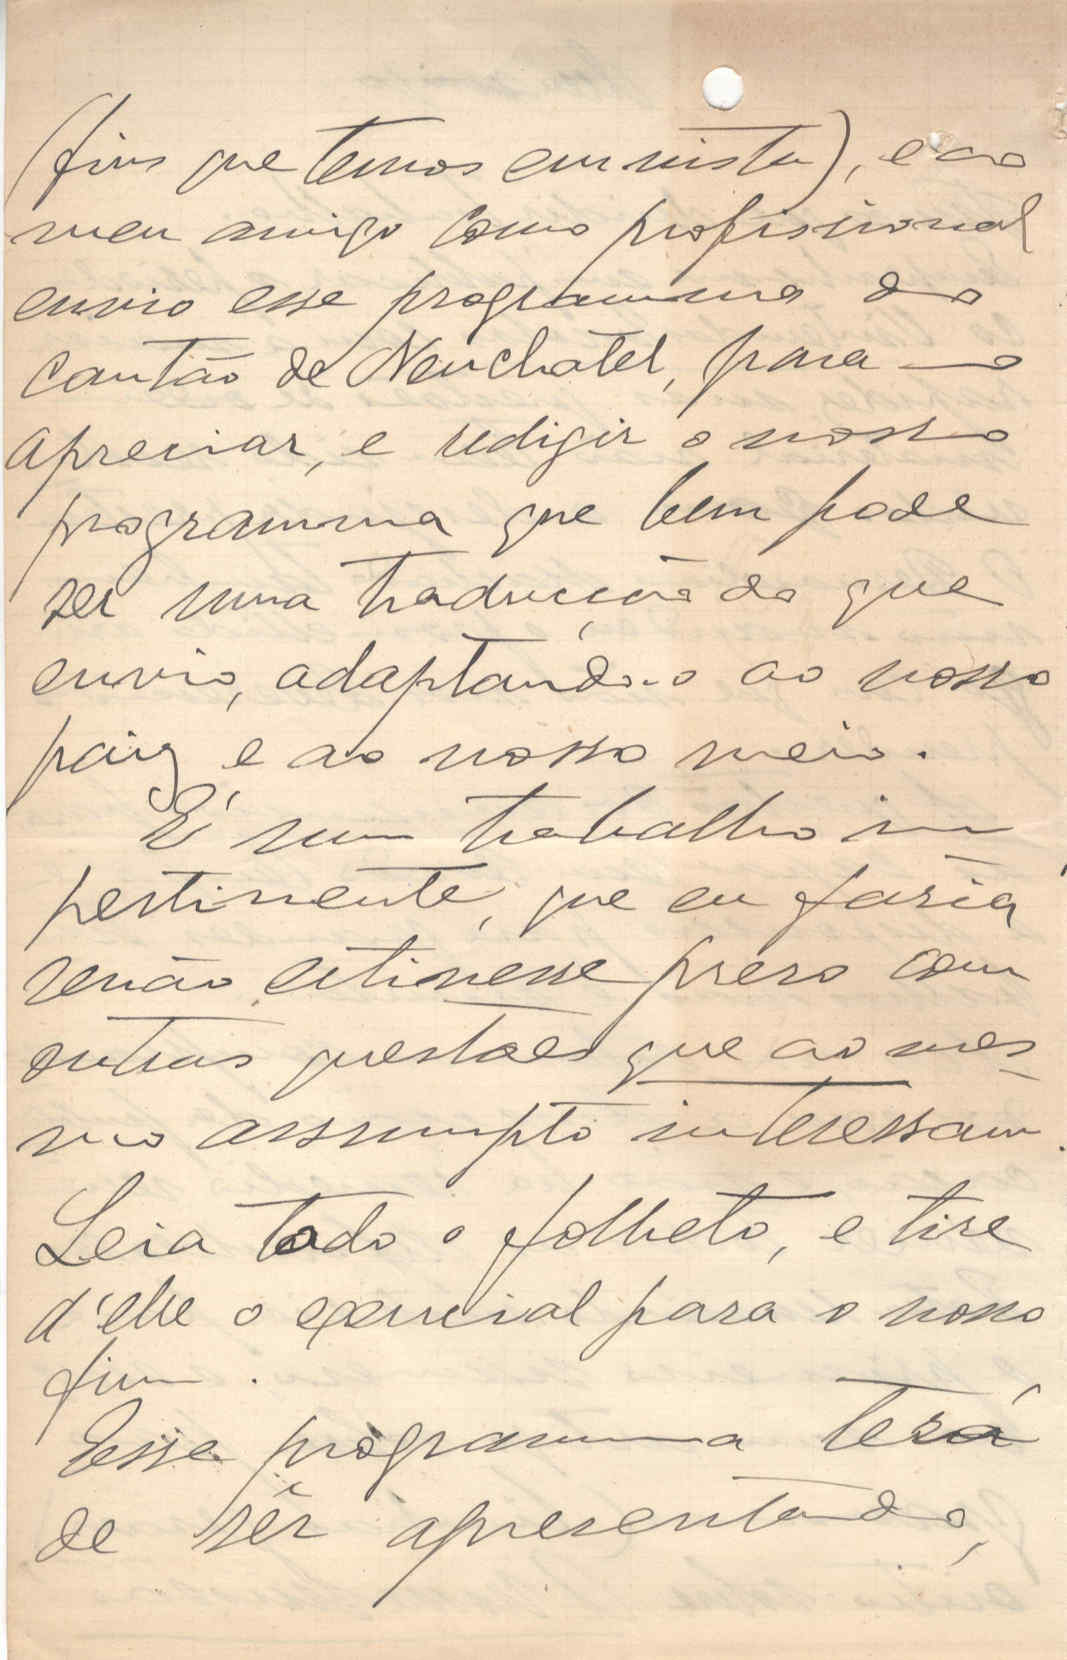 (fins que temos em vista), e ao
meu amigo como profissional
envio esse programma do
cantão de Neuchatel, para o
apreciar, e redigir o nosso
programma que bem pode
ser uma traducção do que
envio, adaptando-o ao nosso
paiz e ao nosso meio.
É um trabalho im
pertinente, que eu faria
senão estivesse preso com
outras questões que ao mes
mo assumpto interessam.
Leia todo o folheto, e tire
d'elle o essencial para o nosso
fim.
Esse programma terá
de sêr apresentado,